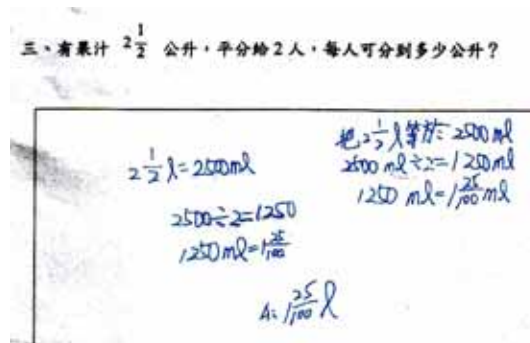 三、有果汁 2 1/2 公升，平分給2人，每人可分到多少公升？
2 1/2 l = 2500ml
2500÷2=1250
1250ml=1 25/100
A: 1 25/100 l
把2 1/2 l等於 2500 ml
2500 ml÷2=1250ml
1250 ml=1 25/100 ml